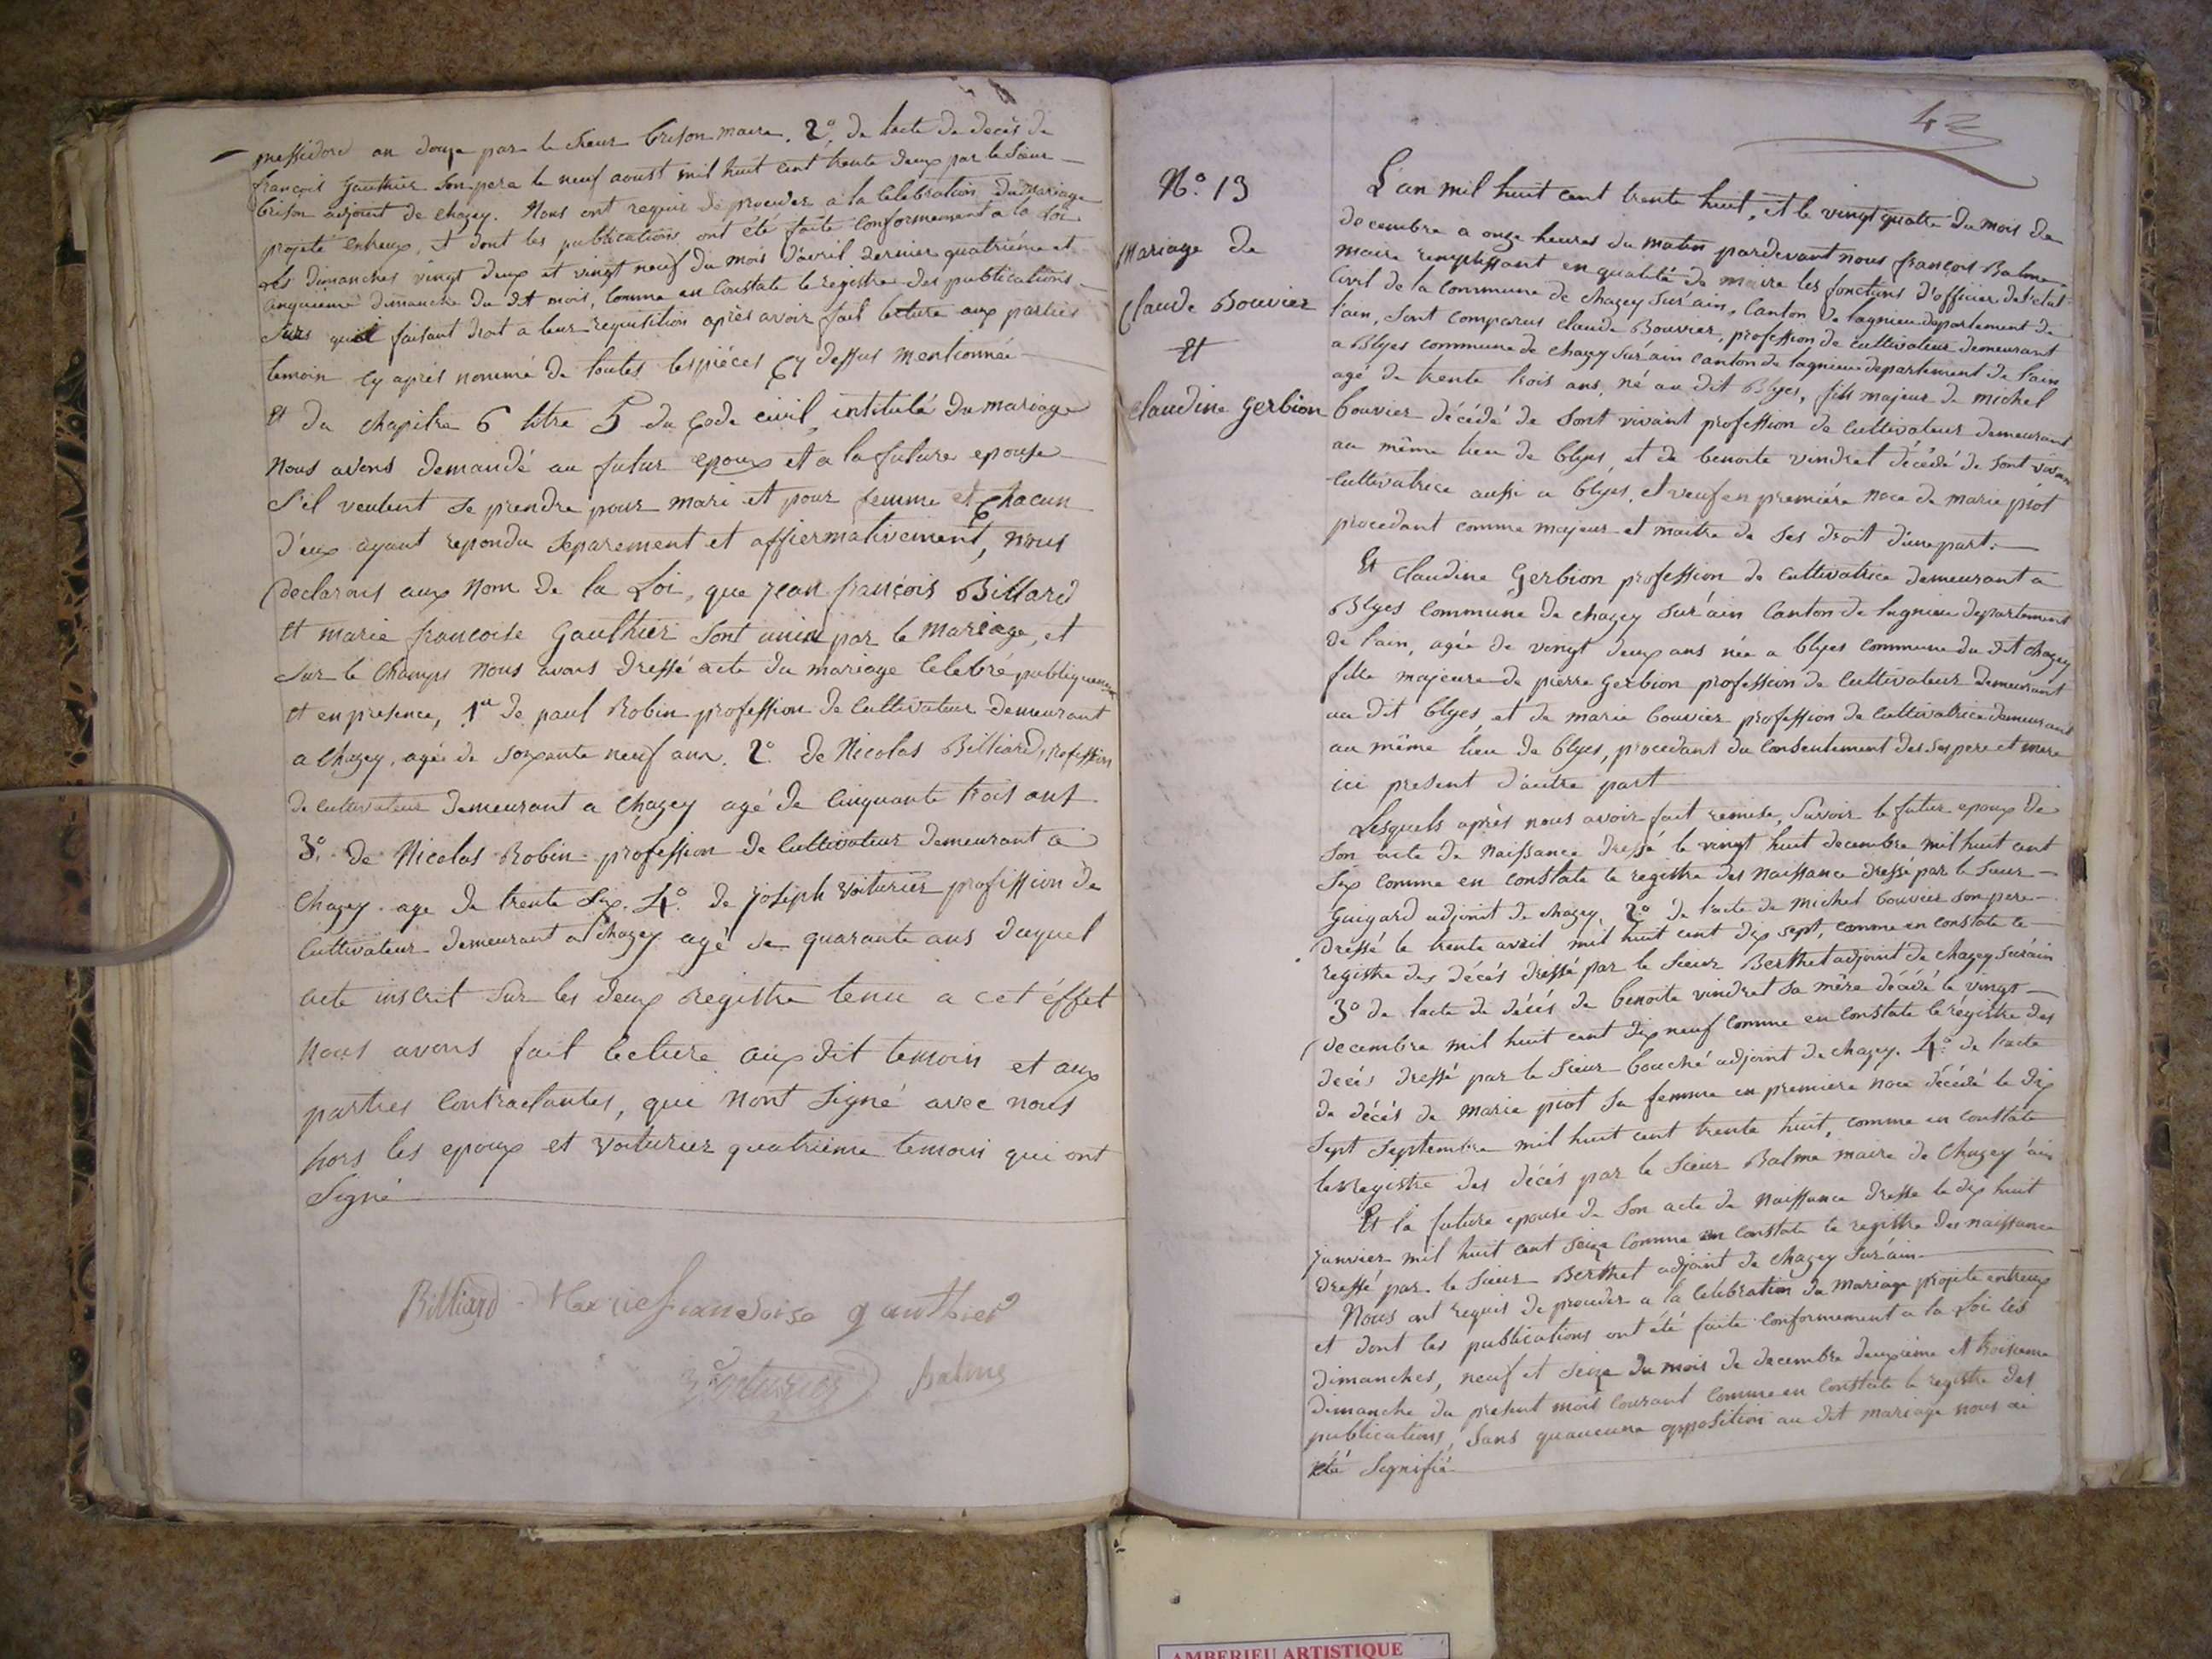 messidord an douze par le sieur brison maire. 2° de lacte de decès de
françois Gauthier son pere le neuf aoust mil huit cent trente deux par le sieur
brison adjoint de chazey. Nous ont requis de proceder a la celebration du mariage
projeté entreux, et dont les publications ont été faite conformement a la Loi
les dimanches vingt deux et vingt neuf du mois d'avril dernier quatriéme et
cinquieme dimanche du dit mois, comme en constate le registre des publications
faisant droit a leur requisition après avoir fait lecture aux parties
temoin cy après nommé de toutes les piéces cy dessus mentionnée
Et du chapitre 6 titre 5 du code civil, intitulé du mariage
Nous avons demandé au futur epoux et a la future epouse
S'il veulent se prendre pour mari et pour femme et chacun
d'eux ayant repondu separement et affiermativement, nous
declarons aux nom de la Loi, que jean françois Billiard
Et marie francoise Gaulthier sont unis par le mariage, et
sur le champs nous avons dressé acte du mariage celebré publiquement
et en presence, 1er de paul Robin profession de cultivateur demeurant
a chazey, agée de soixante neuf ans. 2° de Nicolas Billiard, profession
de cultivateur demeurant a chazey agé de cinquante trois ans
3° de Nicolas Robin profession de cultivateur demeurant a
chazey. age de trente six. 4° de joseph voiturier profission de
cultivateur demeurant a chazey agé de quarante ans duquel
acte inscrit sur les deux registre tenu a cet éffet
Nous avons fait lecture aux dit temoin et aux
parties contractantes, qui nont signé avec nous
hors les epoux et voiturier quatrieme temoin qui ont
Signé
Billiard Marie francoise gauthier
voiturier balme
42
N.° 13
Mariage de
Claude Bouvier
Et
claudine gerbion
L'an mil huit cent trente huit, et le vingt quatre du mois de
decembre a onze heures du matin pardevant nous françois Balme
maire remplissant en qualité de maire les fonctions d'officier de l'etat
civil de la commune de chazey sur ain, canton de lagnieu departement de
l'ain, sont comparus claude Bouvier, profession de cultivateur demeurant
a Blyes commune de chazey sur ain canton de lagnieu departement de l'ain
agé de trente trois ans, né au dit Blyes, fils majeur de michel
bouvier décédé de sont vivant profession de cultivateur demeurant
au même lieu de blyes, et de benoite vindret décédé de sont vivant
cultivatrice aussi a blyes, et veuf en premiére noce de marie piot
procedant comme majeur et maitre de ses droit d'une part.
Et claudine Gerbion profession de cultivatrice demeurant a
Blyes commune de chazey sur ain canton de lagnieu departement
de l'ain, agée de vingt deux ans née a blyes commune du dit chazey
fille majeure de pierre Gerbion profession de cultivateur demeurant
au dit blyes, et de marie bouvier profession de cultivatrice demeurant
au même lieu de blyes, procedant du consentement des ses pere et mere
ici present d'autre part
Lesquels après nous avoir fait remise, savoir le futur epoux de
son acte de naissance dressé le vingt huit decembre mil huit cent
six comme en constate le registre des naissance dressé par le sieur
Guigard adjoint de chazey, 2° de l'acte de michel bouvier son pere
dressé le trente avril mil huit cent dix sept, comme en constate le
registre des décés dressé par le sieur Berthet adjoint de chazey sur ain
3° de lacte de décés de benoite vindret sa mére décédé le vingt
decembre mil huit cent dix neuf comme en constate le régistre des
decés dressé par le sieur bouché adjoint de chazey. 4° de l'acte
de décés de marie piot sa femme en premiere noce décédé le dix
sept septembre mil huit cent trente huit, comme en constate
le registre des décés par le sieur Balme maire de chazey ain
Et la future epouse de son acte de naissance dresse le dix huit
janvier mil huit cent seize comme en constate le registre des naissance
dressé par le sieur Berthet adjoint de chazey sur ain
Nous ont requis de proceder a la celebration du mariage projeté entreux
et dont les publications ont été faite conformement a la Loi les
dimanches, neuf et seize du mois de decembre deuxieme et troisieme
dimanche du présent mois courant comme en constate le registre des
publications, sans quaucune opposition au dit mariage nous ai
été signifié
AMBERIEU ARTISTIQUE